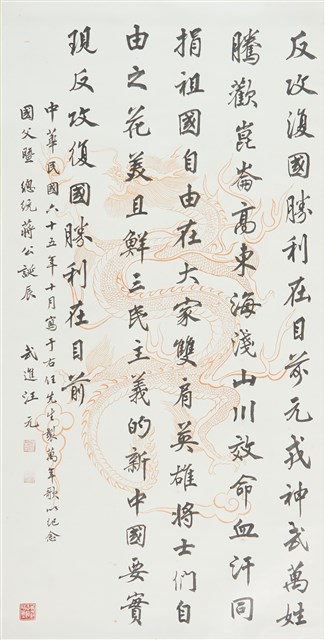 反攻復國勝利在目前元戎神武萬姓
騰歡崑崙高東海淺山川效命血汗同
捐祖國自由在大家雙肩英雄將士們自
由之花美且鮮三民主義的新中國要實
現反攻復國勝利在目前
中華民國六十五年十月寫于右任先生製萬年歌以紀念
國父暨 總統蔣公誕辰 武進汪元